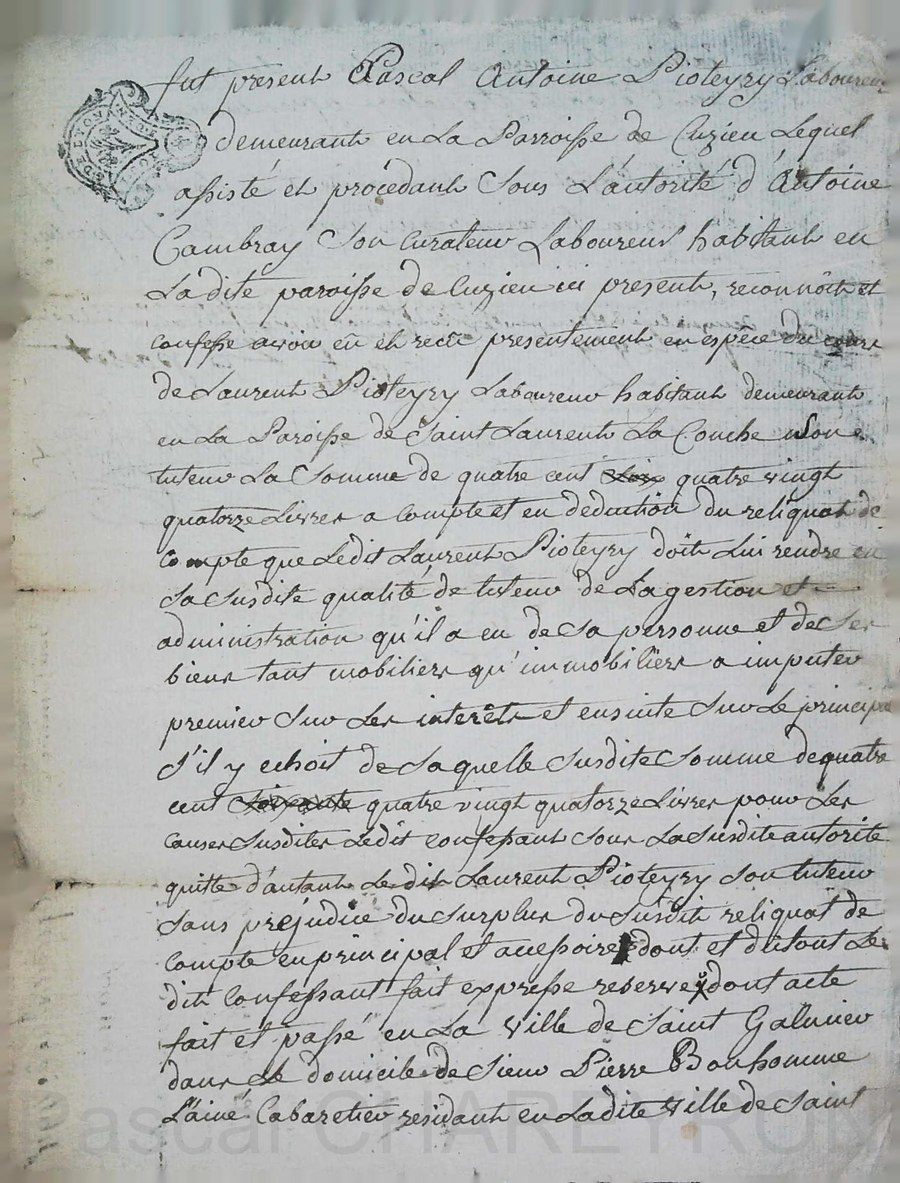 fut present Pascal Antoine Pioteyry Laboureur
demeurant en La Parroisse de Cuzieu Lequel
assisté et procedant Sous L'autorité d'Antoine
Cambray Son Curateur Laboureur habitant en
La dite paroisse de Cuzieu ici present, reconnoit et
confesse avoir eü et recû presentement en espèce du cours
de Laurent Pioteyry Laboureur habitant demeurant
en La Paroisse de Saint Laurent La Conche Son
tuteur La Somme de quatre cent quatre vingt
quatorze Livres a compte et en deduction du reliquat de
compte que Ledit Laurent Pioteyry doit Lui rendre en
Sa Susdite qualité de tuteur de La gestion et
administration qu'il a eu de Sa personne et de Ses
biens tant mobiliers qu'immobiliers a imputer
premier Sur Les interêts et ensuite Sur Le principal
S'il y echoit de Laquelle Susdite Somme de quatre
cent soixante quatre vingt quatorze Livres pour Les
causes Susdites Ledit confessant Sous La Susdite autorité
quitte d'autant Ledit Laurent Pioteyry Son tuteur
Sans prejudice du Surplus du Susdit reliquat de
compte en principal et accessoire dont et du tout Le
dit Confessant fait expresse reserve dont acte
fait et passé en La Ville de Saint Galmier
dans Le domicile de Sieur Pierre Bonhomme
L'ainé Cabaretier residant en Ladite Ville de Saint
Pascal CHAREYRON